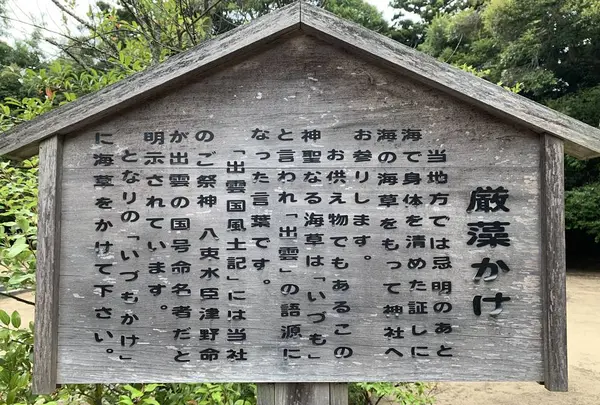 厳藻かけ
当地方では忌明のあと
海で身体を清めた証しに
海の海草をもって神社へ
お参りします。
お供え物でもあるこの
神聖なる海草は「いづも」
と言われ「出雲」の語源に
なった言葉です。
「出雲国風土記」には当社
のご祭神 八束水臣津野命
が出雲の国号命名者だと
明示されています。
となりの「いづもかけ」
に海草をかけて下さい。